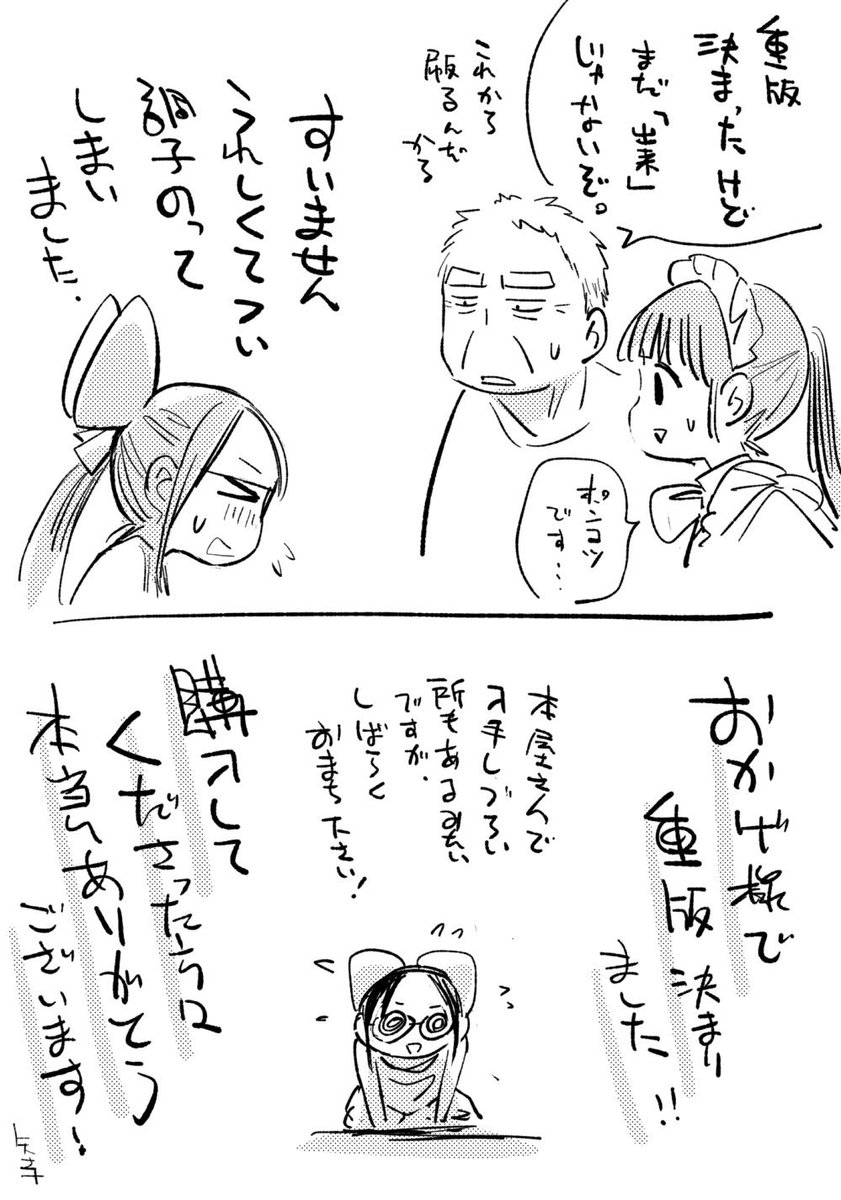 重版
決まったけど
まだ「出来」
じゃないぞ。
これから
刷るんだ
から
ポンコツ
です…
すいません
うれしくてつい
調子のって
しまい
ました.
おかげ様で
重版決まり
ました!!
本屋さんで
入手しづらい
所もあるみたい
ですが、
しばらく
おまち下さい!
購入して
くださった方々
本当にありがとう
ございます!